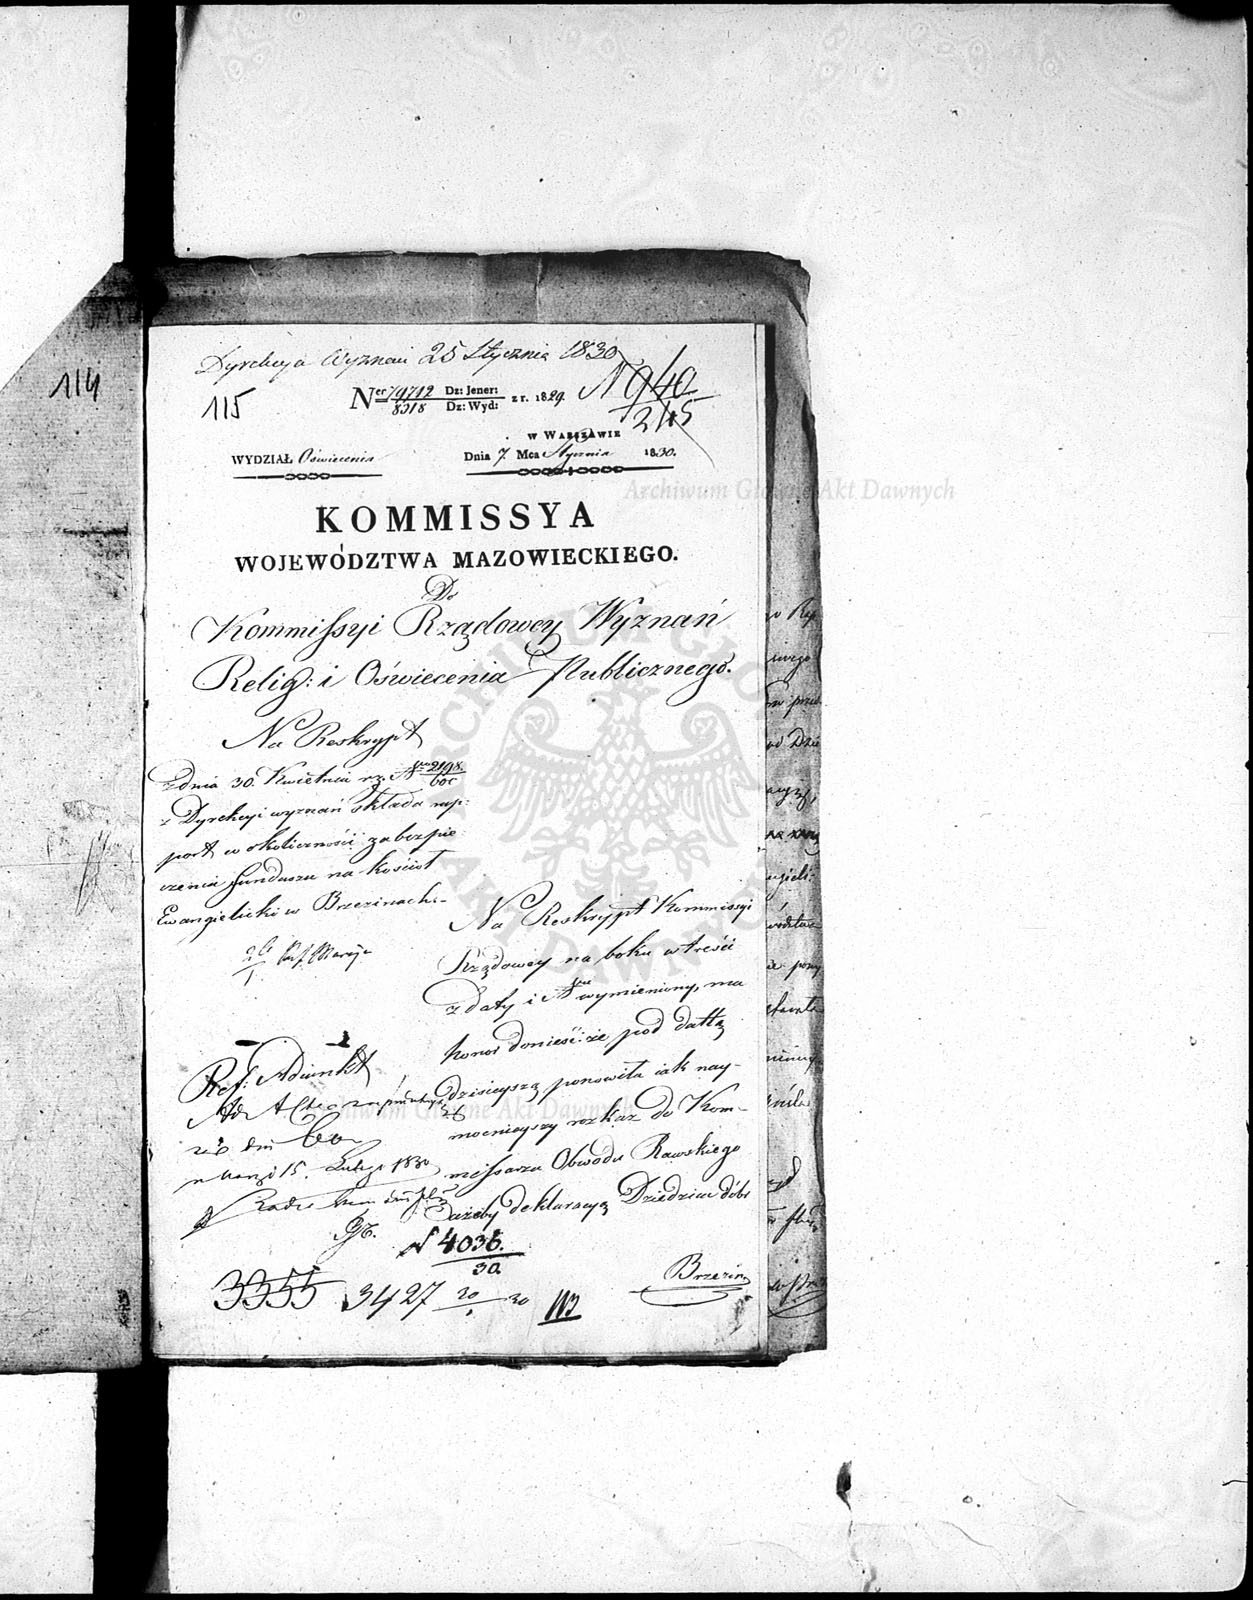 114
Dyrekcya Wyznań 25 Stycznia 1830
115
Ner 79712 Dz: Jener: z r. 1829. N 940
8318 Dz: Wyd: 245
w Warszawie
WYDZIAŁ Oświecenia Dnia 7. Mca Stycznia 1830.
KOMMISSYA
WOJEWÓDZTWA MAZOWIECKIEGO.
Do
Kommissyi Rządowey Wyznań
Relig: i Oświecenia Publicznego.
Na Reskrypt
z dnia 30. Kwietnia r.z. N 2198.
z Dyrekcyi wyznań składa rap-
port w okoliczności zabezpie-
czenia funduszu na kościół
Ewangielicki w Brzezinach.-
Na Reskrypt Kommissyi
Rządowey na boku w treści
z daty i Nru wymieniony, ma
honor donieść: że pod dattą
dzisieyszą ponowiła iak nay-
mocnieyszy rozkaz do Kom-
missarza Obwodu Rawskiego
ażeby deklaracyą Dziedzica dóbr
Brzezin
Ref: Adiunkt
15. Lutego 1830
N 4036.
30.
3355 3427 20 30 113
Archiwum Główne Akt Dawnych